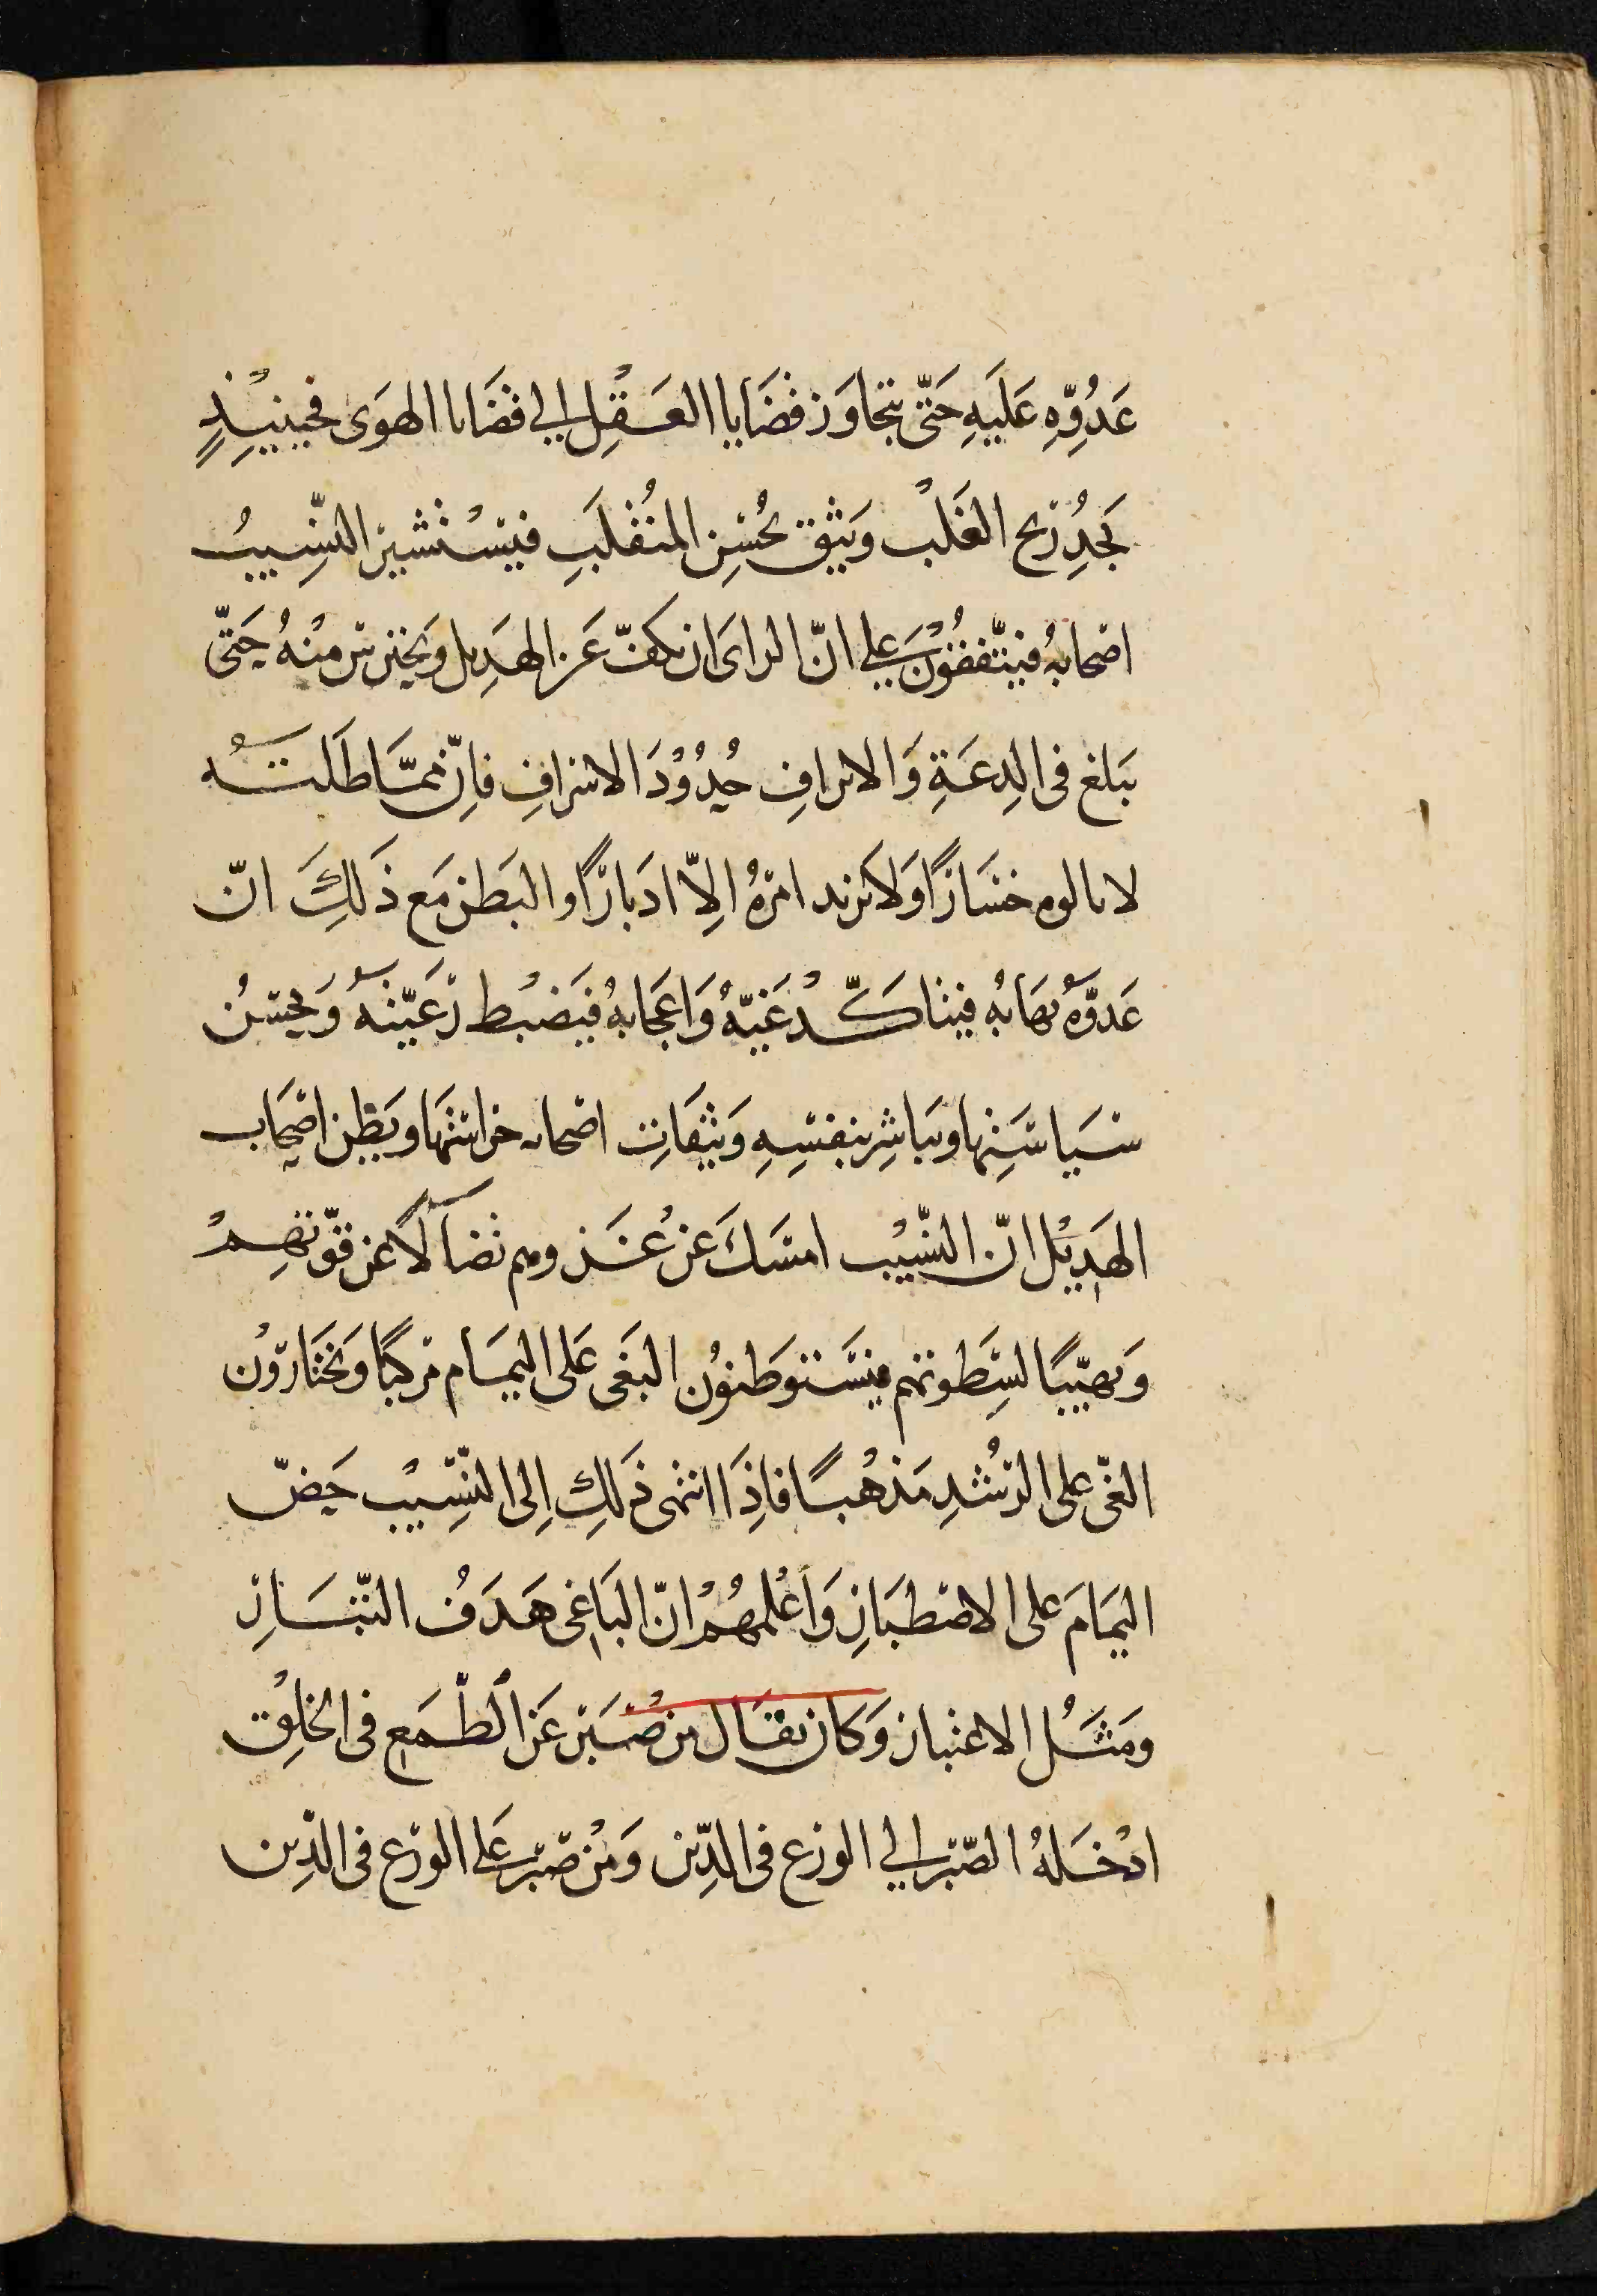 عَدُوِّهِ عَلَيهِ حَتّى يتجاوَز قضَايا العَقْلِ الي قضَايا الهوَى فحِينَئِذٍ
يَجدُ ريح الغَلَب وَيَثِق بحُسْنِ المنُقلَبِ فيَسْتشير النّسِيبُ
اصْحابهُ فيَتَّفقُوْنَ علي انّ الراىَ ان يكفّ عَن الهَدِيل ويَحترسَ منْهُ حَتّى
يَبلغ فى الدِعَةِ وَالاتراف حُدُوْدَ الاسْرافِ فاِنّ مَا طَلَبَتْهُ
لا يالوه خسَارًا وَلا يَزيد امْرهُ اِلاّ ادبَارًا والبَطر مَع ذَلِكَ انّ
عَدوّهُ يهَابُه فيتَاكَّدُ غَيّهُ وَاعجَابهُ فيَضبُط رَعَيّتهُ وَيحسْنُ
سْيَاسَتهَا ويبَاشِر بنفسِهِ وَبثقَاتِ اصْحابه حراستهَا ويَظن اصْحَاب
الهَدِيْل انّ النّسَيْب امسَكَ عَنْ غَزوهم تضآلًا عن قوّتهِمْ
وَتهيّبًا لسِطوتهم فيَسْتوَطنوُن البَغى عَلى اليمَام مركبًا وَيختَارُوْن
الغّى على الرّشدِ مَذهْبًا فاِذَا انتهى ذَلكِ اِلى النّسَيْب حَضّ
اليمَامَ على الاصْطبَارِ وَاَعْلمهُمْ انّ البَاغى هَدَفُ التّبَارِ
ومَثَلُ الاعتبار وَكان يقَال من صَبَر عَن الطّمَع فى الخلْق
ادْخَلهُ الصّبْر الي الورَع فى الدِّين وَمَنْ صَبَر عَلي الورَع فى الدّين